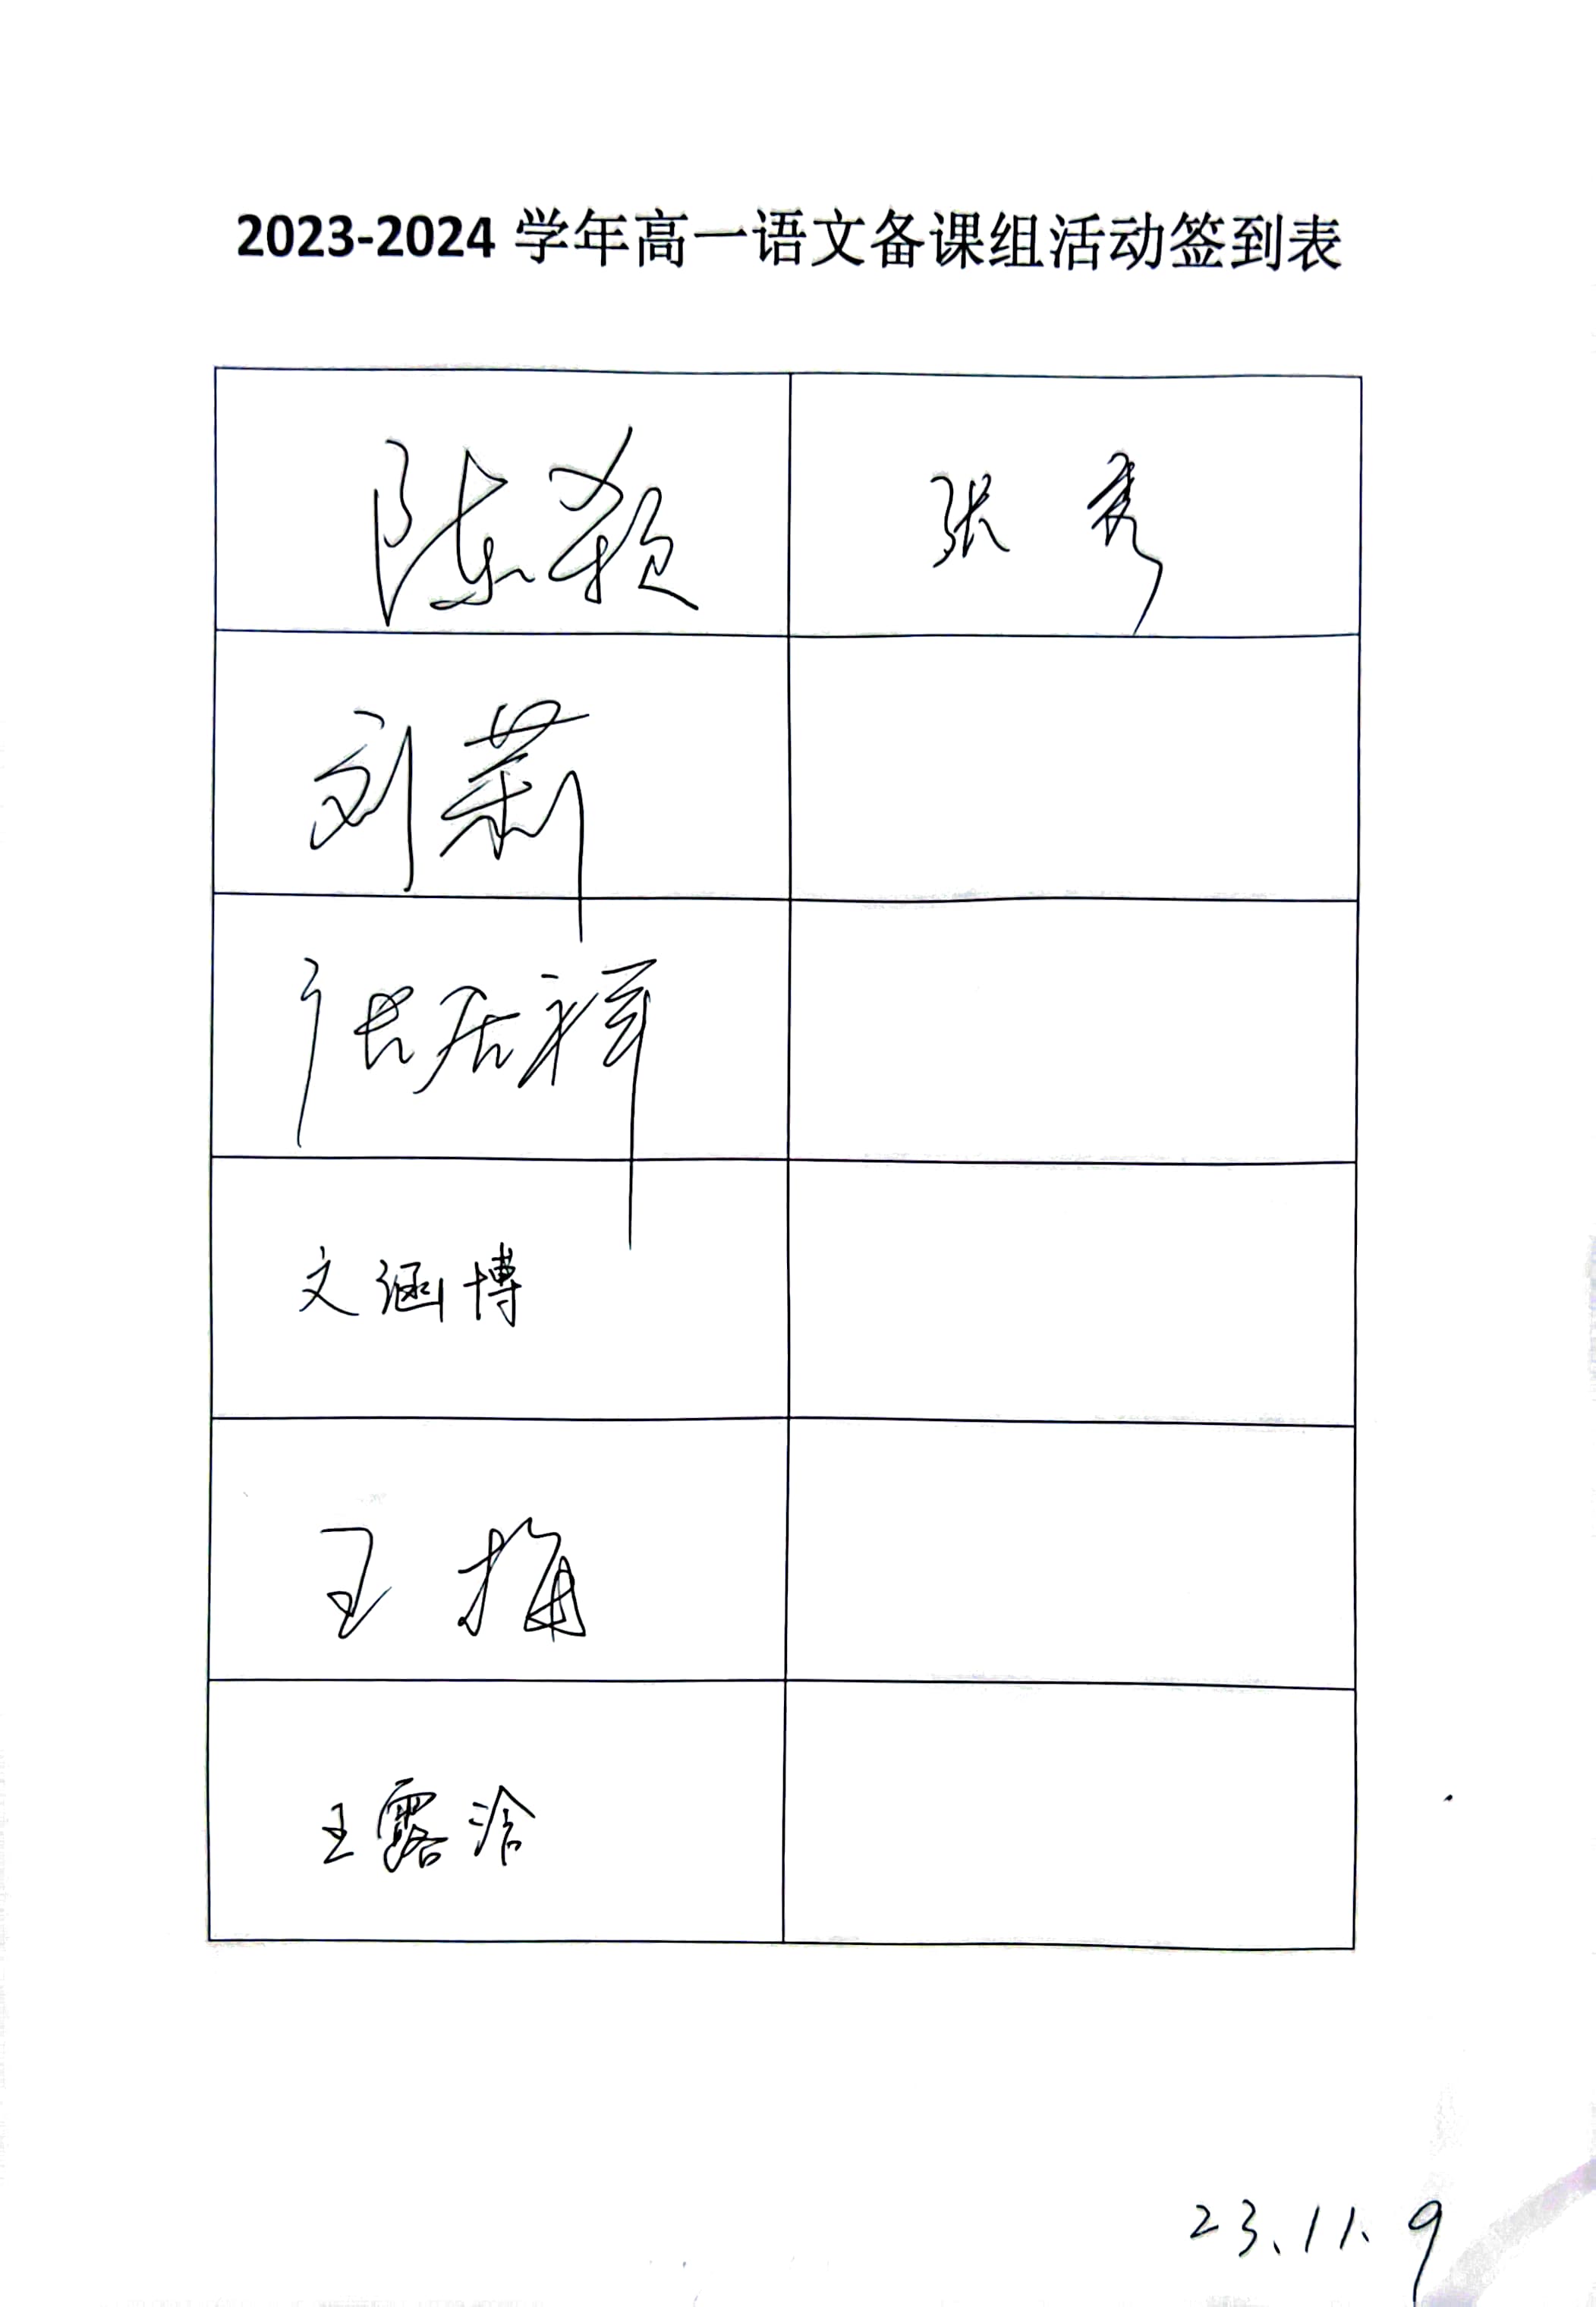 2023-2024 学年高一语文备课组活动签到表
陈颖 张秀
刘莉
张居祥
文涵博
王梅
王露浛
23.11.9